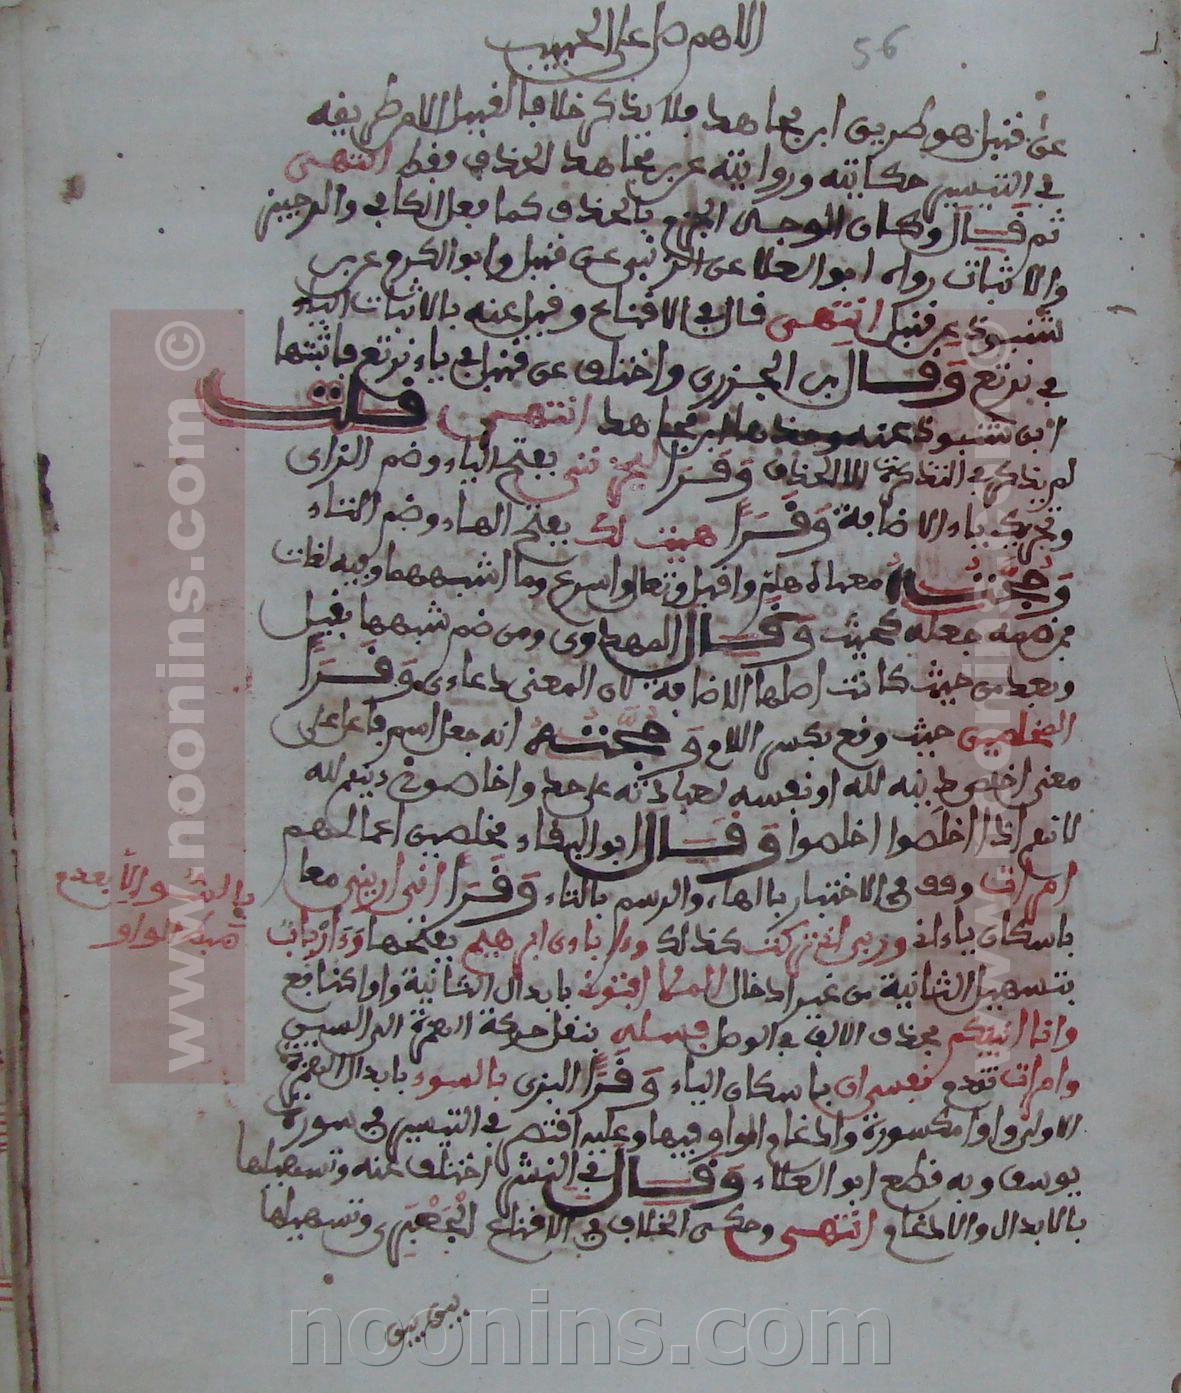 اللهم صل على الحبيب
56
عن قنبل هو طريق ابن مجاهد فلا يذكر خلافا لقنبل الا من طريقه
في التيسير حكايته وروايته عن بن مجاهد الحذف فقط انتهى
ثم قال وكان الوجه الجزم بالحذف كما فعل الكافي والوجيز
والاثبات رواه ابو العلا عن الزينبي عن قنبل وابو الكرم عن بن
شنبوذ عن قنبل انتهى قال في الاقناع وقيل عنه بالاثبات الياء
في نرتع وقال بن الجزري واختلف عن قنبل في ياء نرتع فاثبتها
ابن شنبوذ عنه وحذفها ابن مجاهد انتهى قلت
لم يذكر في التذكرة الا الحذف وقرا ليحزنني بفتح الياء وضم الزاى
وتحريك ياء الاضافة وقرا هيت لك بفتح الهاء وضم التاء
وحجته معناه هلم واقبل وتعال واسرع وما اشبهها وفيه لغات
فمن ضمه جعله كحيث وقال المهدوى ومن ضم شبهها بقبل
وبعد من حيث كانت اصلها الاضافة لان المعنى دعاءى وقرا
المخلصين حيث وقع بكسر اللام وحجته انه جعل اسم فاعل على
معنى اخلص دينه لله او نفسه لعبادته على حد واخلصوا دينهم لله
لانهم اذا اخلصوا اخلصوا وقال ابو البقاء مخلصين اعمالهم
امرات وقف في الاختبار بالهاء والرسم بالتاء وقرا انى اريني معا
باسكان ياء انى وربى انى تركت كذلك وءاباءى ابرهيم بفتحها وءارباب
بتسهيل الثانية من غير ادخال الملا افتونى بابدال الثانية واوا كنافع
وانا انبيكم بحذف الالف في الوصل فسله بنقل حركة الهمزة الى السين
وامرات تقدم نفسى ان باسكان الياء وقرا البزى بالسوء بابدال الهمزة
الاولى واوا مكسورة وادغام الواو فيها وعليه اقتصر في التيسير في سورة
يوسف وبه قطع ابو العلاء وقال في النشر اختلف عنه وتسهيلها
بالابدال والادغام انتهى وحكى الخلاف في الاقناع الجعبرى وتسهيلها
بين بين
www.noonins.com ©
www.noonins.com ©
noonins.com